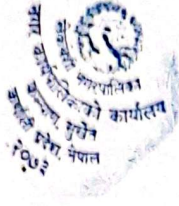 नगरपालिका
नगर कार्यपालिकाको कार्यालय
सुर्खेत
कर्णाली प्रदेश, नेपाल
२०७३